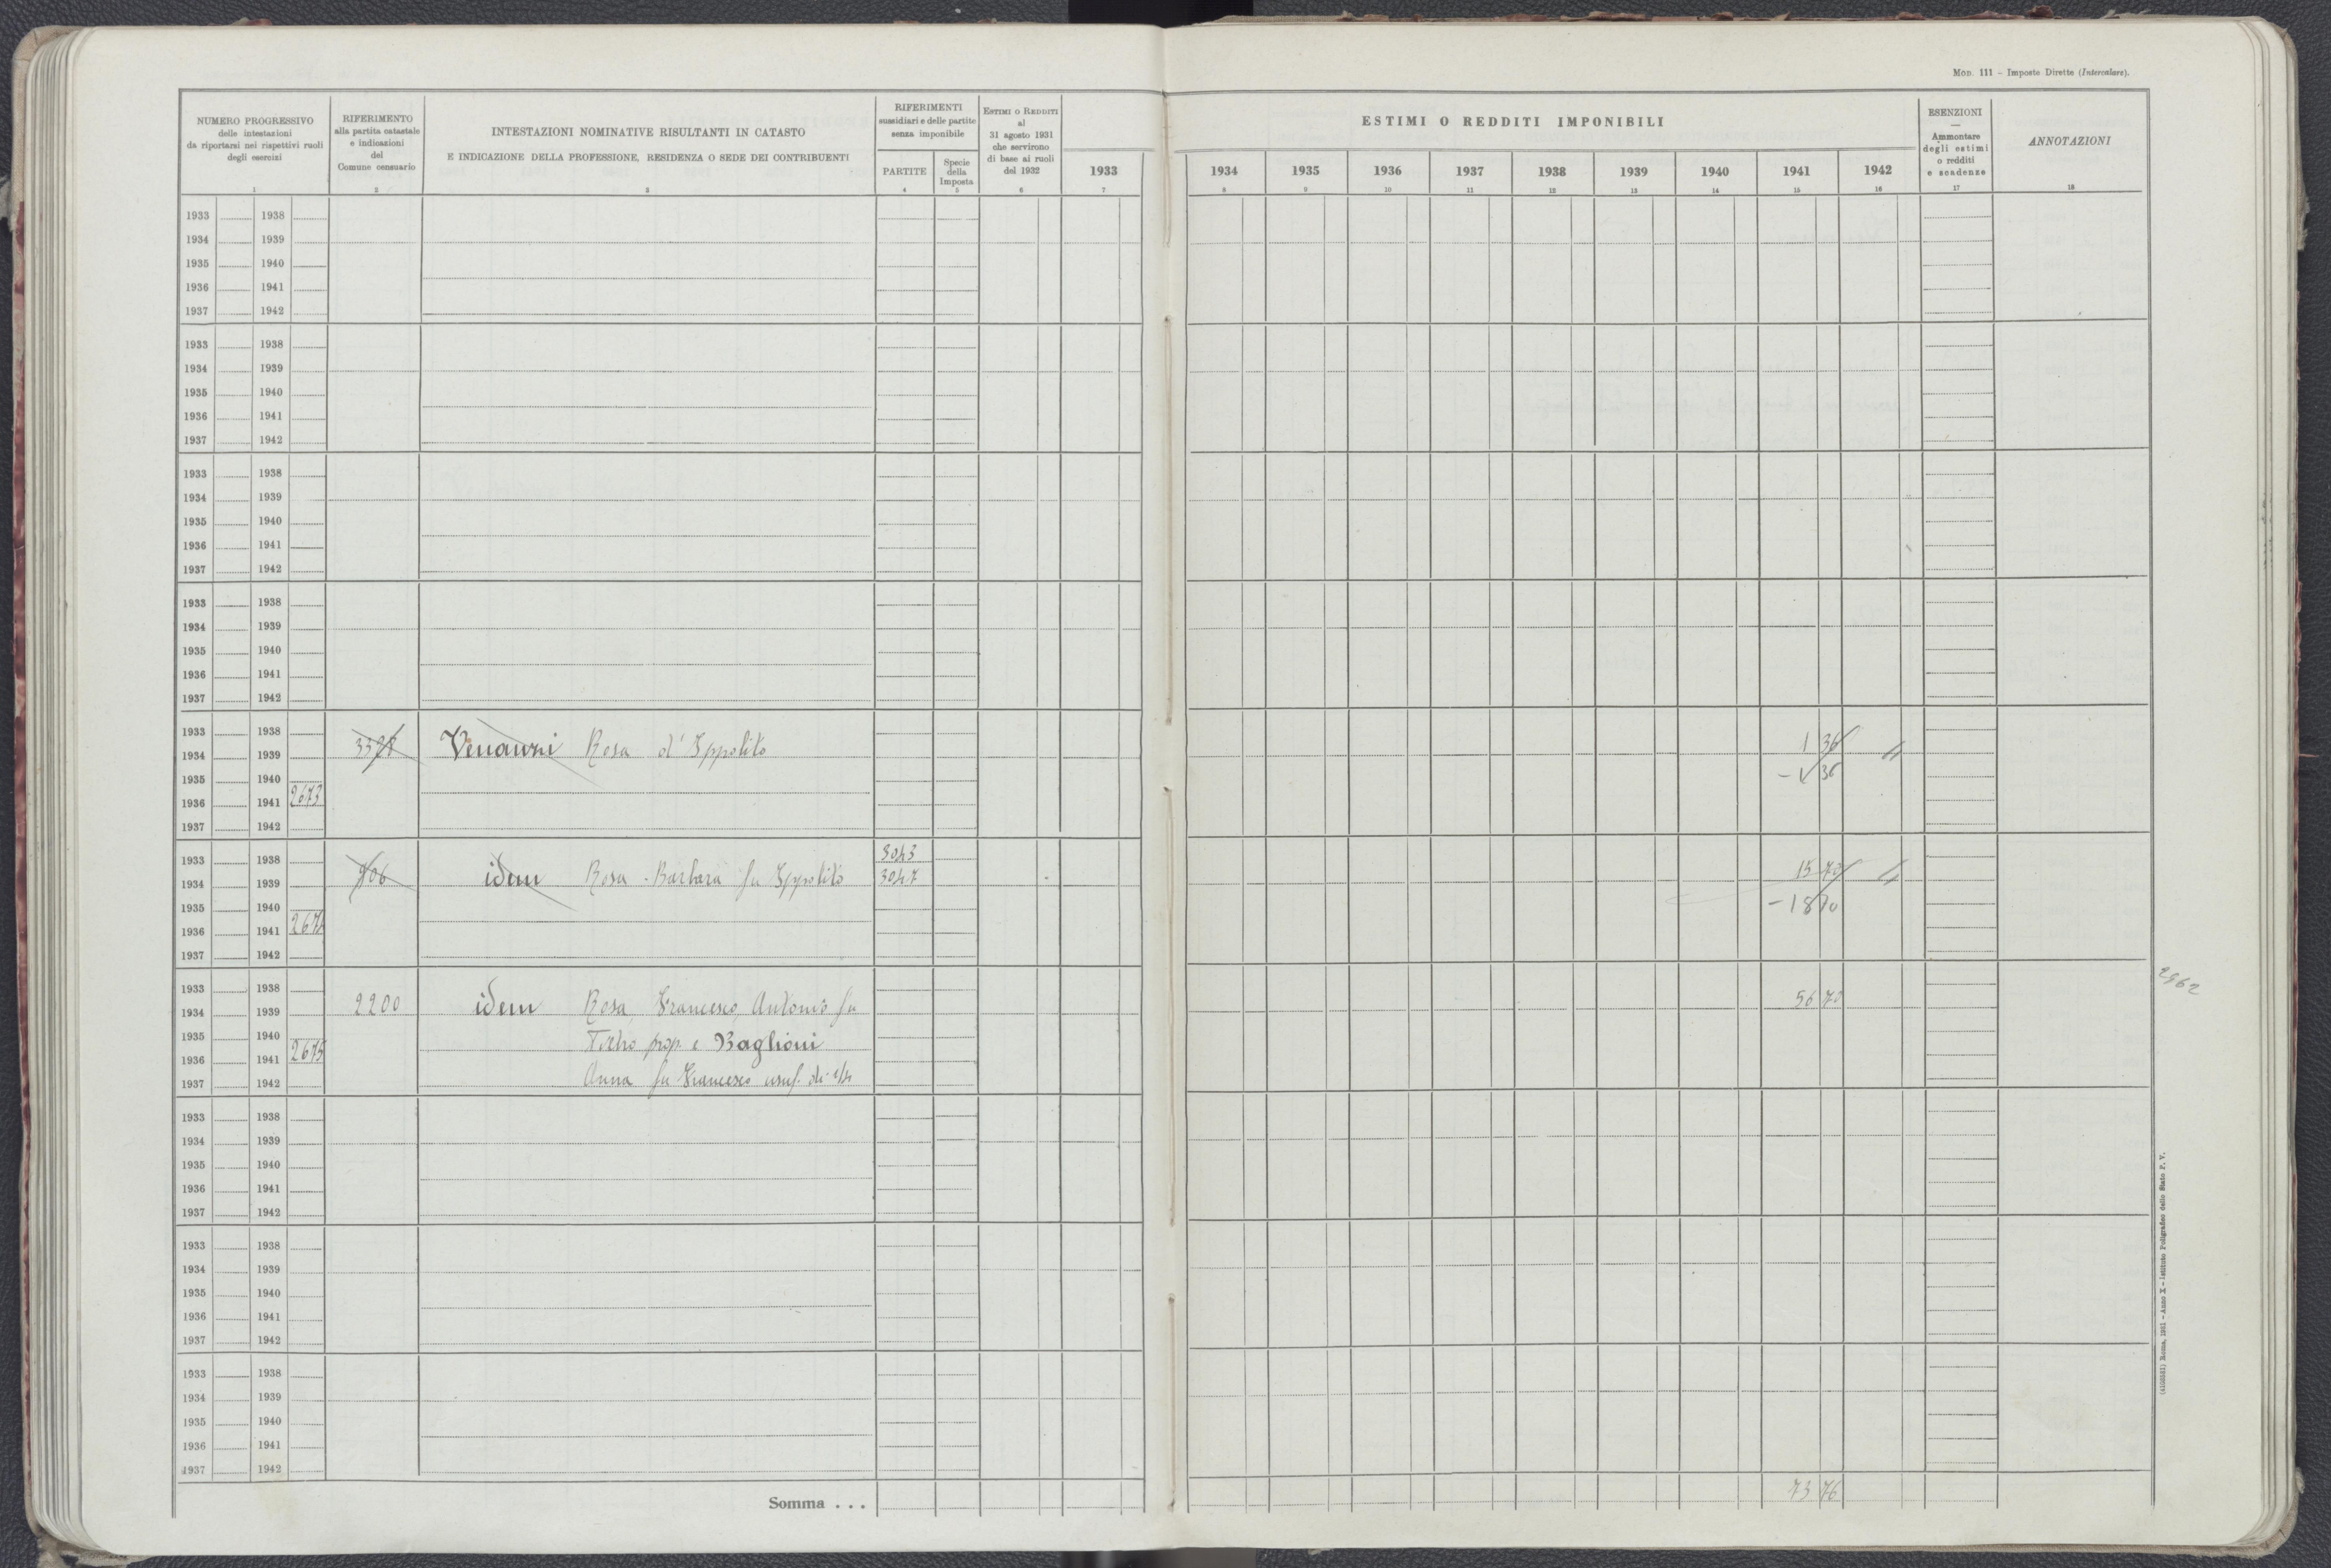 MOD. 111 – Imposte Dirette (Intercalare).
NUMERO PROGRESSIVO
delle intestazioni
da riportarsi nei rispettivi ruoli
degli esercizi
1
RIFERIMENTO
alla partita catastale
e indicazioni
del
Comune censuario
2
INTESTAZIONI NOMINATIVE RISULTANTI IN CATASTO
E INDICAZIONE DELLA PROFESSIONE, RESIDENZA O SEDE DEI CONTRIBUENTI
3
RIFERIMENTI
sussidiari e delle partite
senza imponibile
PARTITE
4
Specie
della
Imposta
5
ESTIMI O REDDITI
al
31 agosto 1931
che servirono
di base ai ruoli
del 1932
6
ESTIMI O REDDITI IMPONIBILI
1933 1934 1935 1936 1937 1938 1939 1940 1941 1942
7 8 9 10 11 12 13 14 15 16
ESENZIONI
—
Ammontare
degli estimi
o redditi
e scadenze
17
ANNOTAZIONI
18
1933 1938
1934 1939
1935 1940
1936 1941
1937 1942
1933 1938
1934 1939
1935 1940
1936 1941
1937 1942
1933 1938
1934 1939
1935 1940
1936 1941
1937 1942
1933 1938
1934 1939
1935 1940
1936 1941
1937 1942
1933 1938
1934 1939 Rosa d'Ippolito 1 36 "
1935 1940 - 1 36
1936 1941 2673
1937 1942
1933 1938 3043
1934 1939 906 idem Rosa - Barbara fu Ippolito 3047 15 70 "
1935 1940
1936 1941 2674
1937 1942
1933 1938
1934 1939 2200 idem Rosa, Francesco, Antonio fu 56 70
1935 1940 Pietro prop. e Baglioni
1936 1941 2675
1937 1942 Anna fu Francesco usuf. di 1/4
2962
1933 1938
1934 1939
1935 1940
1936 1941
1937 1942
1933 1938
1934 1939
1935 1940
1936 1941
1937 1942
1933 1938
1934 1939
1935 1940
1936 1941
1937 1942
Somma . . . 73 76
Roma, 1931 – Anno X – Istituto Poligrafico dello Stato P. V.